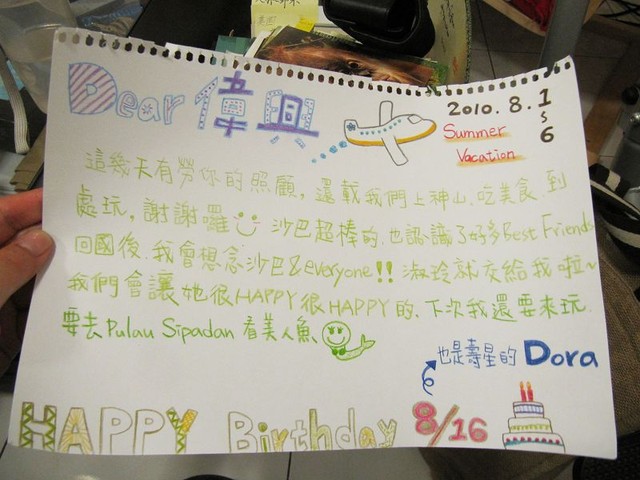 Dear 偉興
2010.8.1
~
6
Summer
Vacation
這幾天有勞你的照顧, 還載我們上神山、吃美食、到
處玩, 謝謝囉 沙巴超棒的、也認識了好多Best Friends
回國後、我會想念沙巴&everyone!! 淑玲就交給我啦~
我們會讓她很HAPPY很HAPPY的、下次我還要來玩.
要去Pulau Sipadan 看美人魚
也是壽星的 Dora
HAPPY Birthday 8/16